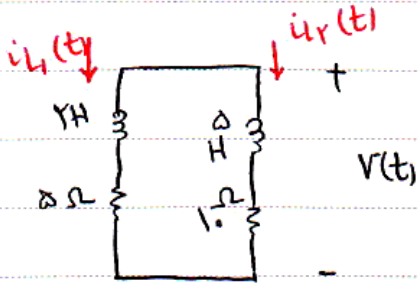 iL₁(t)
iL۲(t)
+
۲H
۵
H
V(t)
۵Ω
Ω
۱۰
-